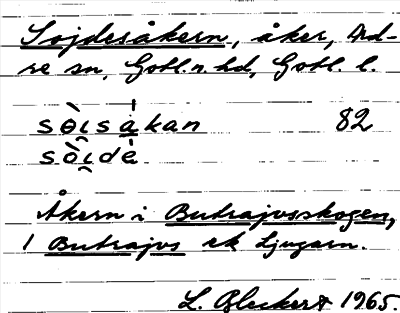 Sojdesåkern, åker, Ard-
re sn, Gotl. n. hd, Gotl. l.
sɵ̀ɩ̯sákan 82
sɵ̀ɩ̯dè
Åkern i Butrajvsskogen,
1 Butrajvs ek Ljugarn.
L. Bleckert 1965.